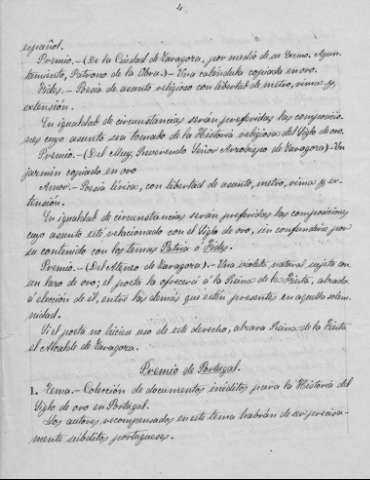 4
español.
Premio.-(De la Ciudad de Zaragoza, por medio de su Excmo. Ayun-
tamiento, Patrono de la Obra.)-Una caléndula copiada en oro.
Fides.- Poesía de asunto religioso con libertad de metro, rima y
extensión.
En igualdad de circunstancias serán preferidas las composicio-
nes cuyo asunto sea tomado de la Historia religiosa del Siglo de oro.
Premio.-(Del Muy Reverendo Señor Arzobispo de Zaragoza)-Un
jazmín copiado en oro
Amor.-Poesía lírica, con libertad de asunto, metro, rima y ex-
tensión.
En igualdad de circunstancias serán preferidas las composiciones
cuyo asunto esté relacionado con el Siglo de oro, sin confundirse por
su contenido con los temas Patria ó Fides.
Premio.-(Del Ateneo de Zaragoza).-Una violeta natural sujeta con
un lazo de oro; el poeta la ofrecerá á la Reina de la Fiesta, alzada
á elección de él, entre las damas que estén presentes en aquella solem-
nidad.
Si el poeta no hiciera uso de este derecho, alzará Reina de la Fiesta
el Alcalde de Zaragoza.
Premio de Portugal.
1. Tema.-Colección de documentos inéditos para la Historia del
Siglo de oro en Portugal.
Los autores recompensados en este tema habrán de ser precisa-
mente súbditos portugueses.